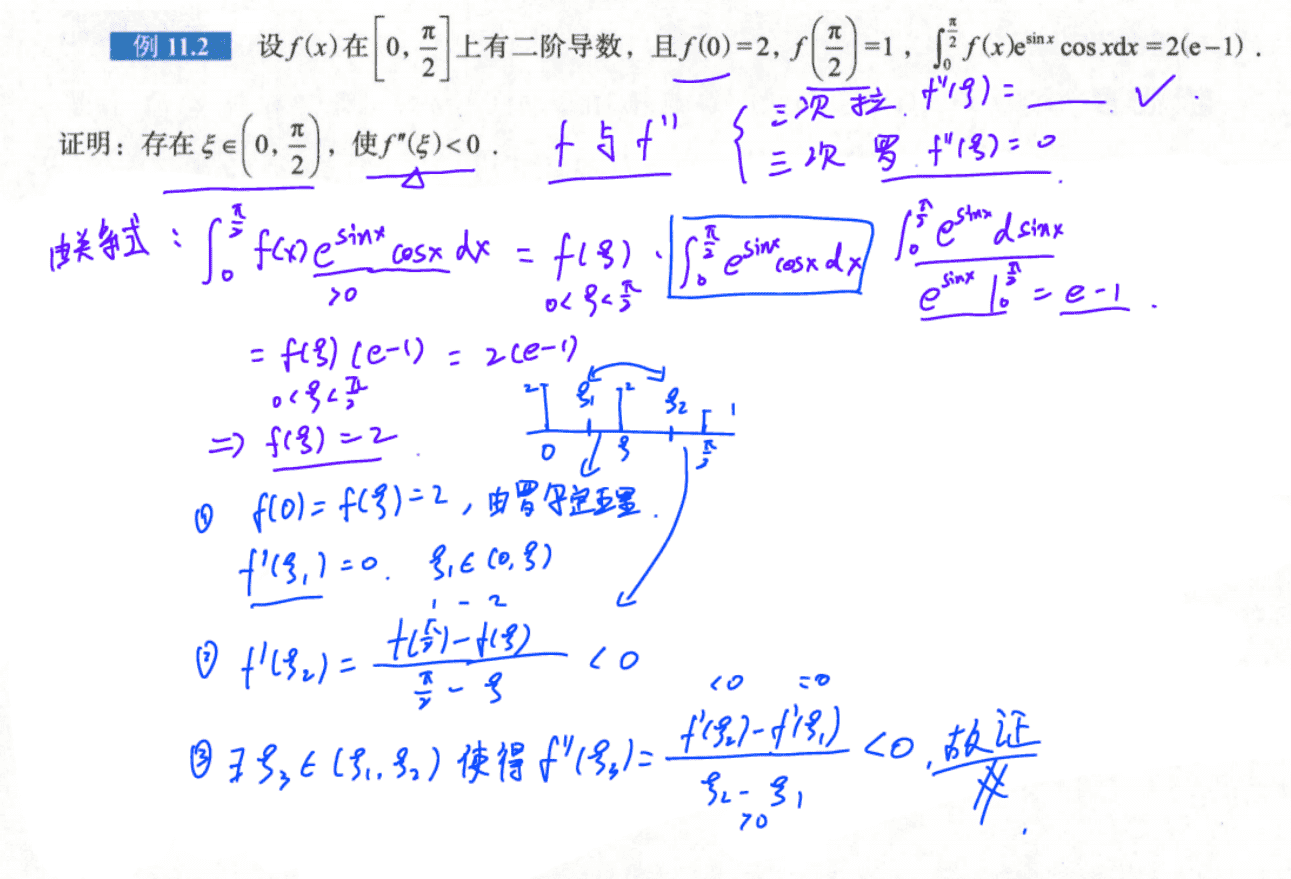 例 11.2 设f(x)在[0, π/2]上有二阶导数，且f(0)=2, f(π/2)=1, ∫₀^{π/2} f(x)e^{sin x} cos xdx=2(e−1).
三次 拉 f''(ξ)= ___ ✓.
证明：存在ξ∈(0, π/2)，使f″(ξ)<0.
f 与 f''
三次 罗 f''(ξ)=0.
由关系式：∫₀^{π/2} f(x)e^{sinx} cosx dx = f(ξ)·∫₀^{π/2} e^{sinx}cosx dx
∫₀^{π/2} e^{sinx} d sinx
>0
0<ξ<π/2
e^{sinx}|₀^{π/2} = e-1.
= f(ξ)(e-1) = 2(e-1)
0<ξ<π/2
2 ξ₁ 2 ξ₂ 1
0 ξ π/2
⇒ f(ξ)=2.
① f(0)=f(ξ)=2, 由罗尔定理.
f'(ξ₁)=0. ξ₁∈(0,ξ)
1 - 2
② f'(ξ₂)= (f(π/2)-f(ξ))/(π/2-ξ) <0
<0 =0
③ ∃ξ₃∈(ξ₁,ξ₂) 使得 f''(ξ₃)= (f'(ξ₂)-f'(ξ₁))/(ξ₂-ξ₁) <0, 故证
>0